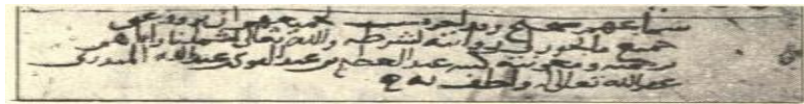 سماعهم صحيح وقد اجزت لجميعهم ان يرووا عني
جميع ما تجوز لي روايته بشرطه والله تعالى يشملنا واياهم
برحمته ومغفرته كتبه عبد العظيم بن عبد القوي بن عبد الله المنذري
غفر الله تعالى له ولطف به